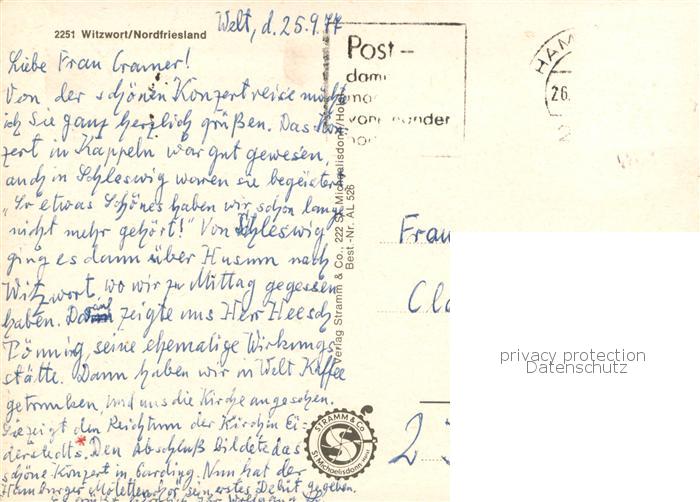 2251 Witzwort/Nordfriesland
Welt, d. 25.9.77
Liebe Frau Cramer!
Von der schönen Konzertreise möchte
ich Sie ganz herzlich grüßen. Das Kon-
zert in Kappeln war gut gewesen,
auch in Schleswig waren sie begeistert
"So etwas Schönes haben wir schon lange
nicht mehr gehört!" Von Schleswig
ging es dann über Husum nach
Witzwort, wo wir zu Mittag gegessen
haben. zeigte uns Herr Heesch
Tönning, seine ehemalige Wirkungs-
stätte. Dann haben wir in Welt Kaffee
getrunken, und uns die Kirche angesehen.
Sie zeigt den Reichtum der Kirchen Ei-
derstedts. * Den Abschluß bildete das
schöne Konzert in Garding. Nun hat der
Hamburger Motettenchor sein erstes Debüt gegeben.
Verlag Stramm & Co., 222 St. Michaelisdonn/Hol
Best.-Nr. AL 526
Post-
dami
voneinander
HAM
26.
2
Frau
Cl
2
STRAMM & CO.
St. Michaelisdonn
privacy protection
Datenschutz